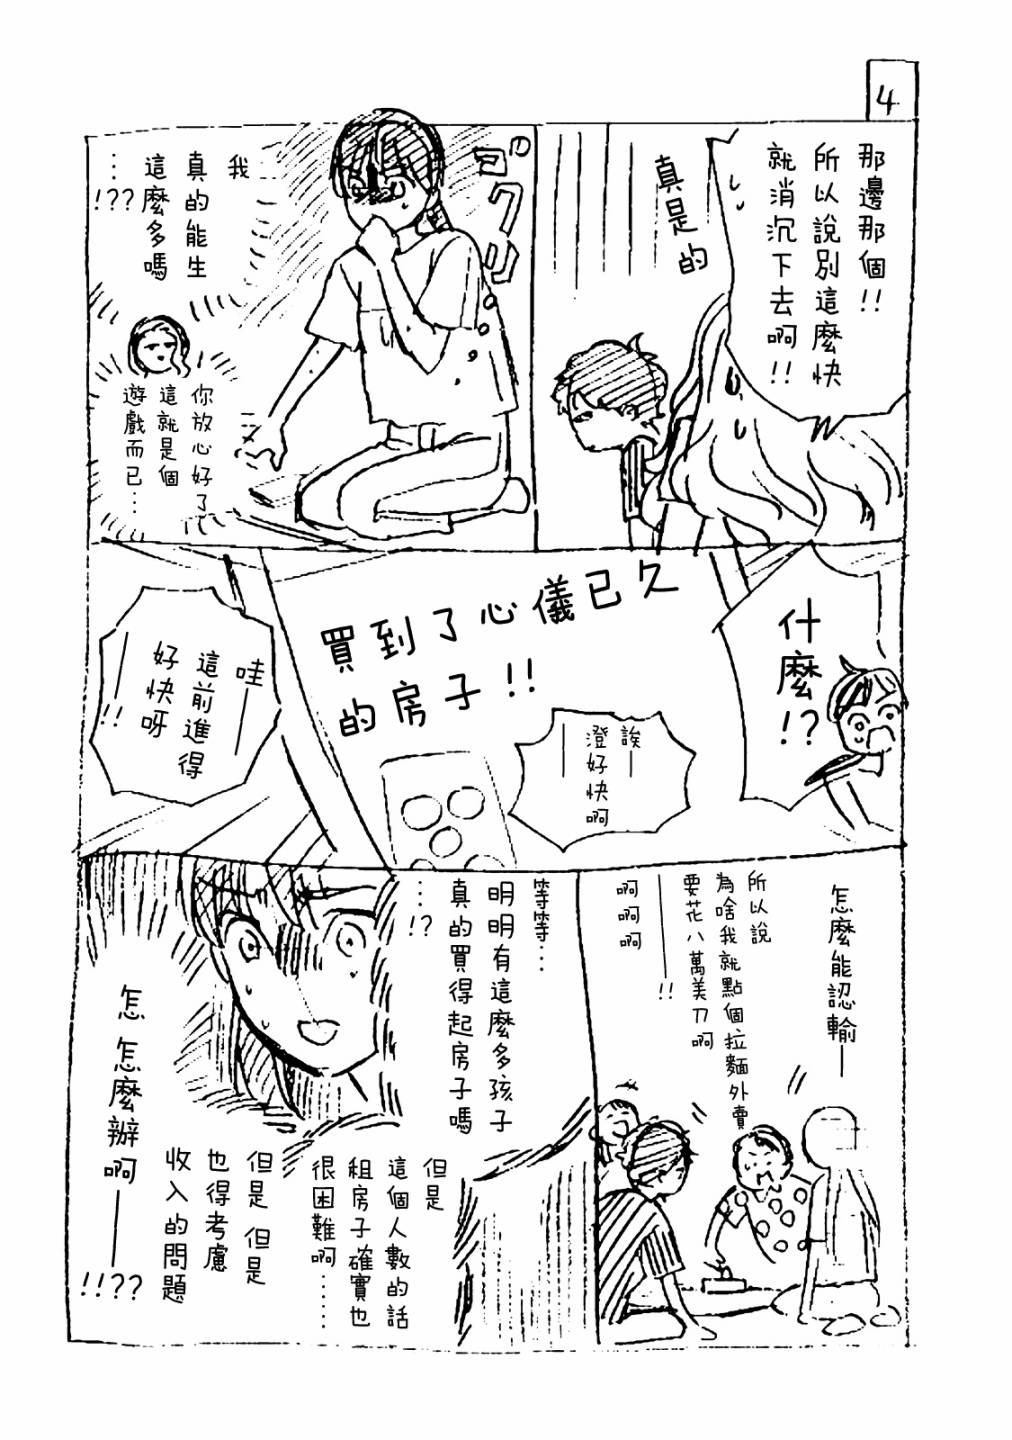 4
那邊那個!!
所以說別這麼快
就消沉下去啊!!
真是的
ゴクリ
我
真的能生
這麼多嗎
…!??
你放心好了
這就是個
遊戲而已…
什麼!?
買到了心儀已久
的房子!!
誒——
澄好快啊——
哇——
這前進得
好快呀——!!
怎麼能認輸——
所以說
為啥我就點個拉麵外賣
要花八萬美刀啊——!!
啊啊啊
等等…
明明有這麼多孩子
真的買得起房子嗎
…!?
但是
這個人數的話
租房子確實也
很困難啊……
但是 但是
也得考慮
收入的問題
怎 怎麼辦啊——!!??